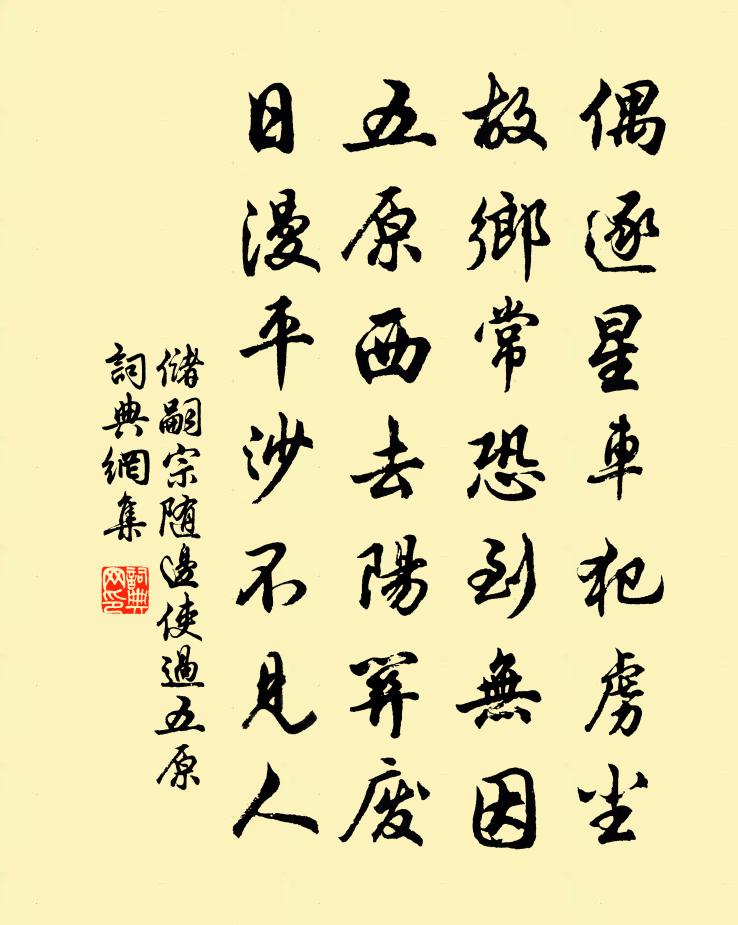 偶逐星車犯虏尘
故鄉常恐到無因
五原西去陽關廢
日漫平沙不見人
儲嗣宗随邊使過五原
詞典網集
詞典网印